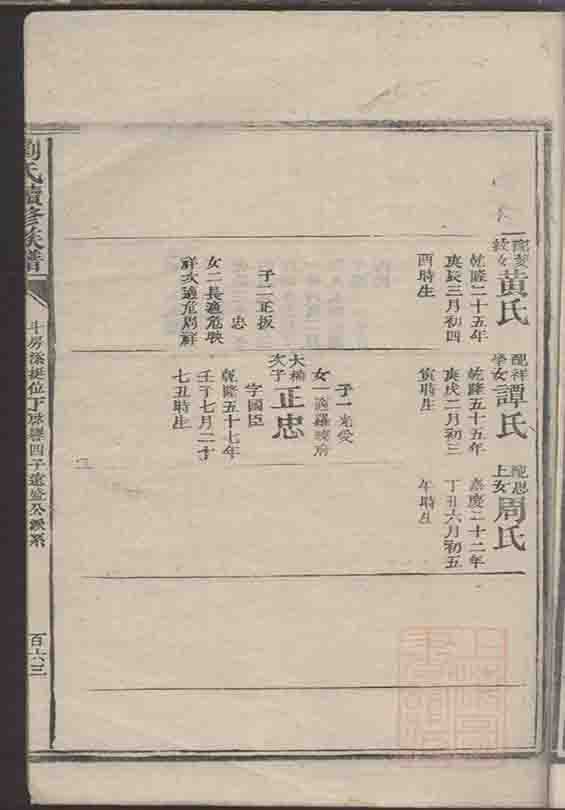 配
女
黄氏
乾隆二十五年
庚辰三月初四
酉時生
子二正扳
忠
女二長適危映
祥次適危則祥
配祥
學女
譚氏
乾隆五十五年
庚戌二月初三
寅時生
子一光受
女一適羅
大楠
次子
正忠
字國臣
乾隆五十七年
壬子七月二十
七丑時生
配恩
上女
周氏
嘉慶二十二年
丁丑六月初五
午時生
劉氏續修族譜
斗房添挺位下 四子遠盛公派系
百六三